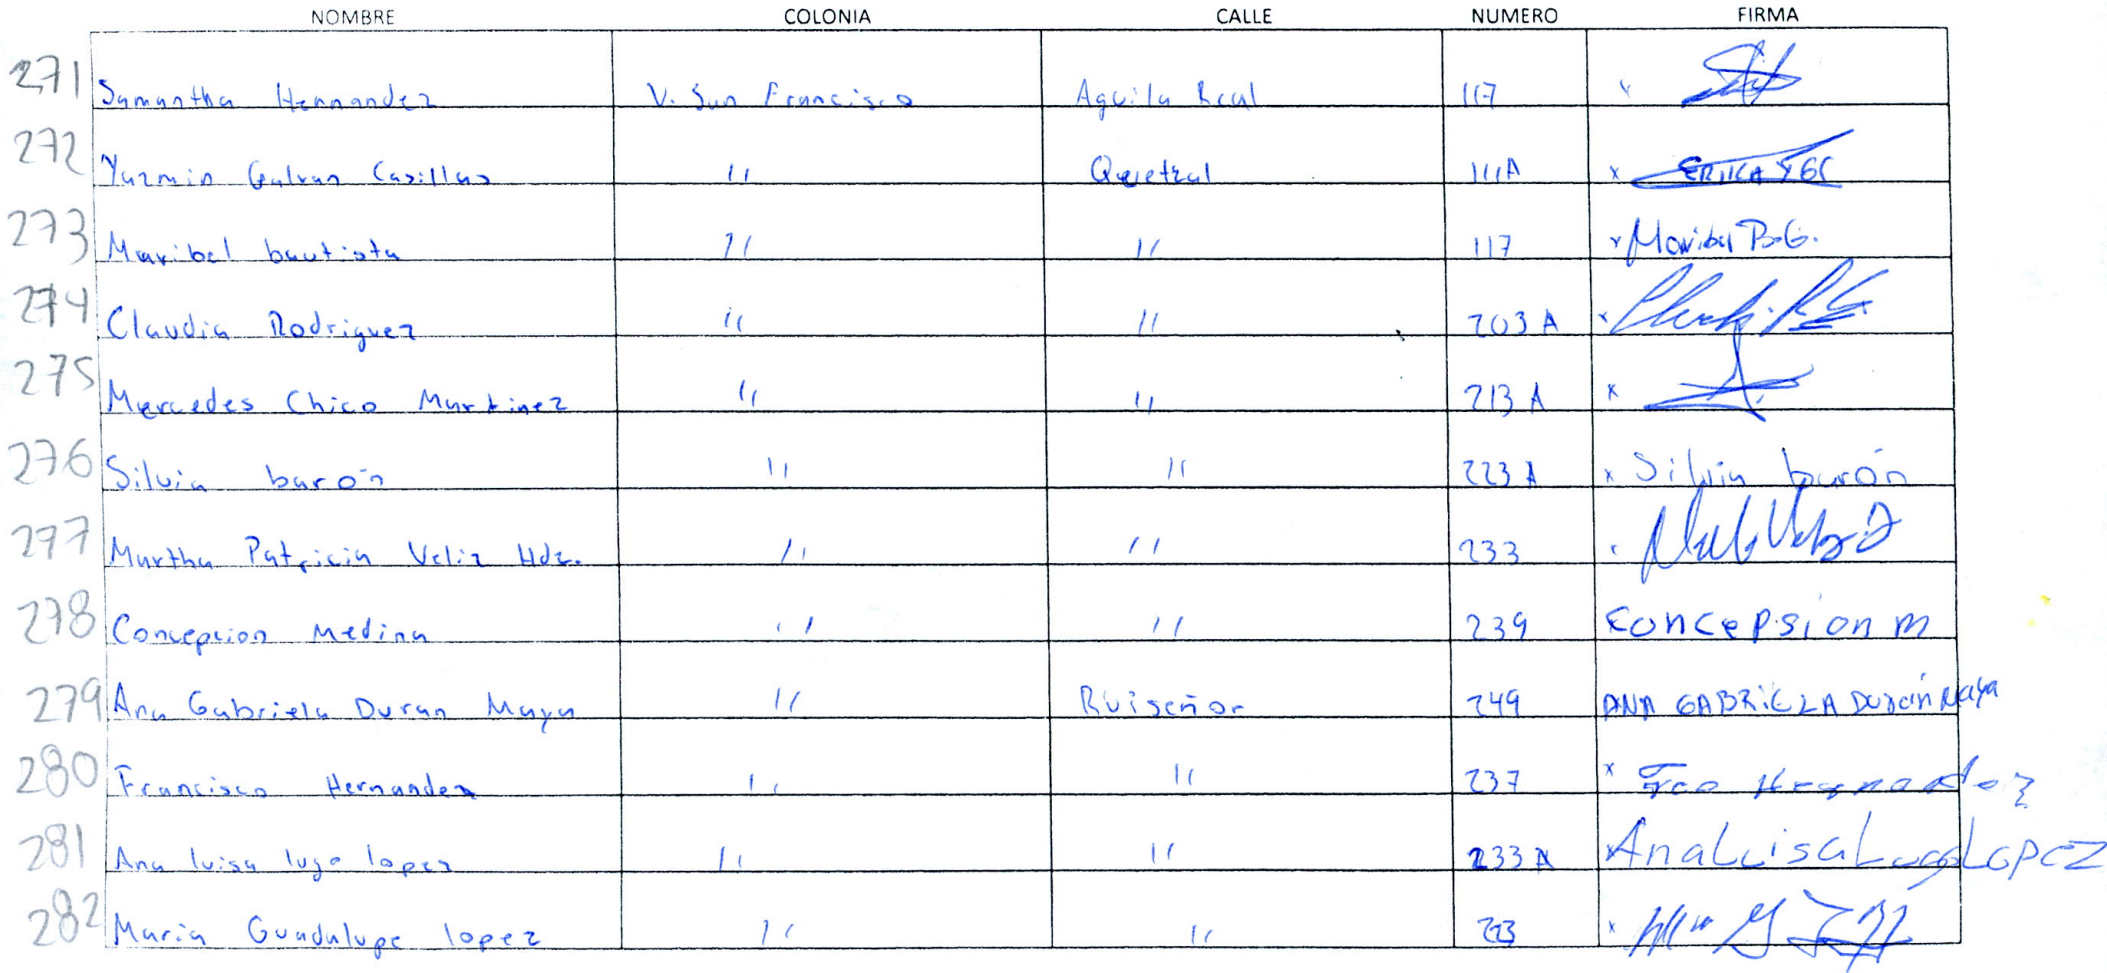 NOMBRE COLONIA CALLE NUMERO FIRMA
271 Samantha Hernandez V. San Francisco Aguila Real 117 x
272 Yazmin Galvan Casillas " Quetzal 111A x ERIKA YGC
273 Maribel bautista " " 117 x Maribel B.G.
274 Claudia Rodriguez " " 203 A x
275 Mercedes Chico Martinez " " 213 A x
276 Silvia barón " " 223 A x Silvia barón
277 Martha Patricia Veliz Hdz. " " 233
278 Concepcion Medina " " 239 Concepsion m
279 Ana Gabriela Duran Maya " Ruiseñor 249 ANA GABRIELA Durán Maya
280 Francisco Hernandez " " 237 x Fco Hernandez
281 Ana luisa lugo lopez " " 233 A x Ana Luisa Lugo Lopez
282 Maria Guadalupe lopez " " 223 x